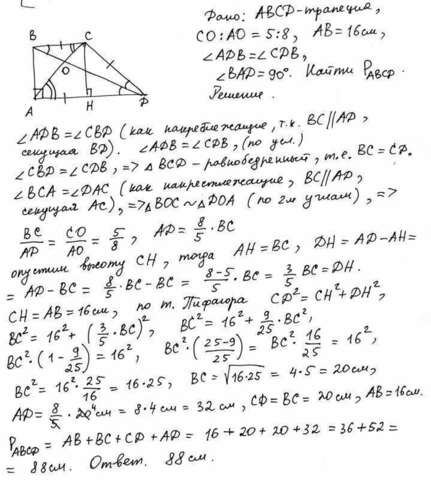 Дано: ABCD-трапеция,
CO:AO = 5:8, AB=16см,
∠ADB=∠CDB,
∠BAD=90°. Найти P_ABCD.
Решение.
B
C
O
A
H
D
∠ADB=∠CBD (как накрестлежащие, т.к. BC∥AD,
секущая BD). ∠ADB=∠CDB, (по усл.)
∠CBD=∠CDB, => △BCD - равнобедренный, т.е. BC=CD.
∠BCA=∠DAC (как накрестлежащие, BC∥AD,
секущая AC), => △BOC~△DOA (по 2м углам), =>
BC/AD = CO/AO = 5/8, AD = 8/5 · BC
опустим высоту CH, тогда AH=BC, DH=AD-AH=
= AD-BC = 8/5 · BC-BC = (8-5)/5 · BC = 3/5 BC=DH.
CH=AB=16см, по т. Пифагора CD²=CH²+DH²,
BC²=16²+(3/5·BC)², BC²=16²+9/25·BC²,
BC²·(1-9/25)=16², BC²·((25-9)/25)=BC²·16/25=16²,
BC²=16²·25/16=16·25, BC=√16·25=4·5=20см,
AD=8/5·20⁴см=8·4см=32см, CD=BC=20см, AB=16см.
P_ABCD = AB+BC+CD+AD = 16+20+20+32=36+52=
= 88см. Ответ. 88см.